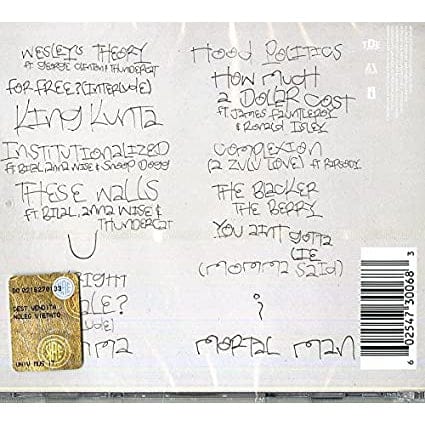 WESLEY'S THEORY
FT GEORGE CLINTON & THUNDERCAT
FOR FREE? (INTERLUDE)
KING KUNTA
INSTITUTIONALIZED
FT BILAL, ANNA WISE & SNOOP DOGG
THESE WALLS
FT BILAL, ANNA WISE &
THUNDERCAT
U
RIGHT
ALE?
UDE)
MMA
HOOD POLITICS
HOW MUCH
A DOLLAR COST
FT JAMES FAUNTLEROY
& RONALD ISLEY
COMPLEXION
(A ZULU LOVE) FT RAPSODY
THE BLACKER
THE BERRY
YOU AINT GOTTA
LIE
(MOMMA SAID)
i
MORTAL MAN
DEST. VENDITA
NOLEG. VIETATO
TDE
6 02547 30068 3